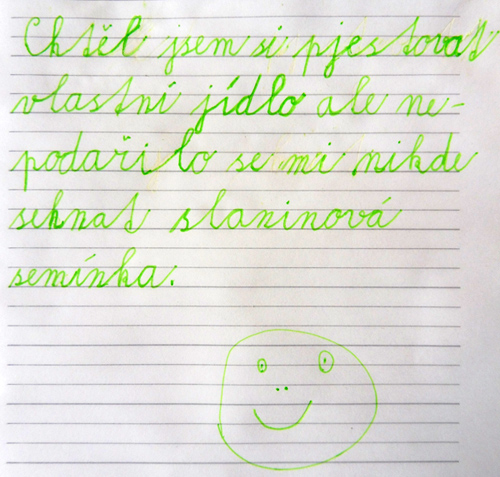 Chtěl jsem si pjestovat
vlastní jídlo ale ne-
podařilo se mi nikde
sehnat slaninová
semínka.